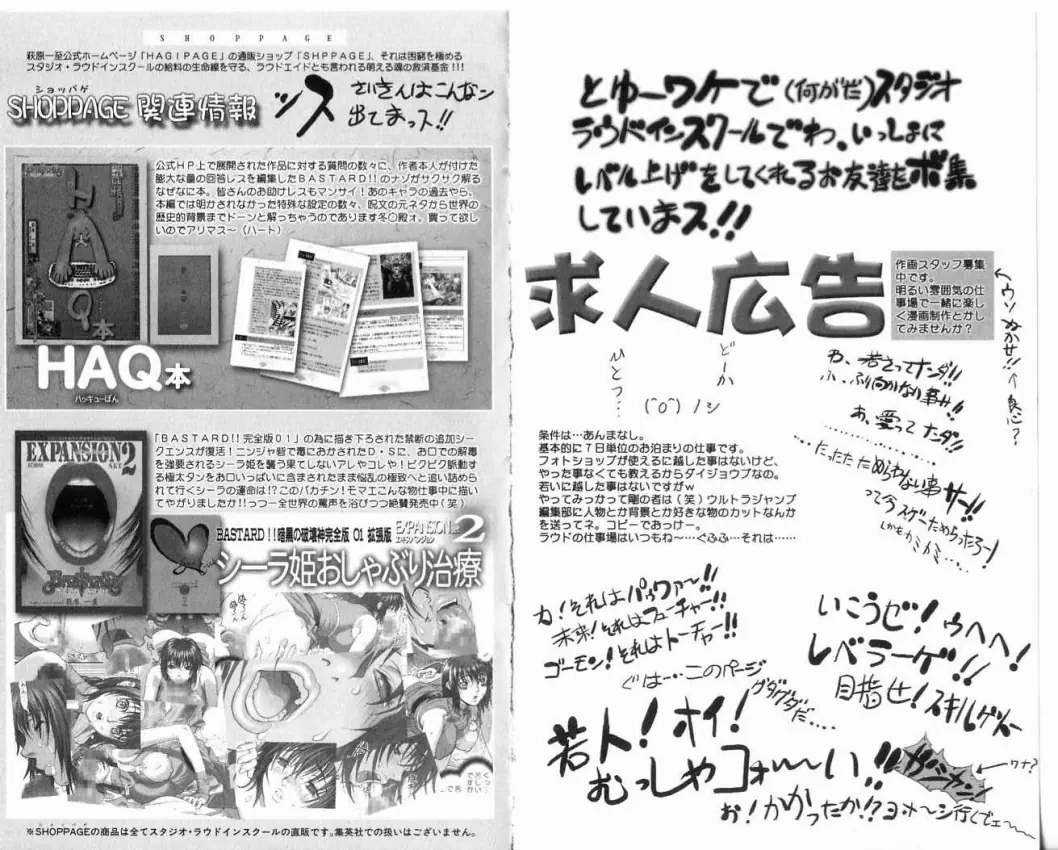 SHOPPAGE
萩原一至公式ホームページ「HAGIPAGE」の通販ショップ「SHPPAGE」、それは困窮を極める
スタジオ・ラウドインスクールの給料の生命線を守る、ラウドエイドとも言われる萌える魂の救済基金!!!
ショッパゲ
SHOPPAGE 関連情報
ッス
さいきんはこんなン
出てまっス!!
公式HP上で展開された作品に対する質問の数々に、作者本人が付けた
膨大な量の回答レスを編集したBASTARD!!のナゾがサクサク解る
なぜなに本。皆さんのお助けレスもマンサイ!あのキャラの過去やら、
本編では明かされなかった特殊な設定の数々、呪文の元ネタから世界の
歴史的背景までドーンと解っちゃうのであります冬〇殿ォ。買って欲し
いのでアリマス〜(ハート)
HAQ本
HAQ本
ハッキューぼん
EXPANSION2
「BASTARD!!完全版01」の為に描き下ろされた禁断の追加シー
クエンスが復活!ニンジャ砦で毒におかされたD・Sに、お口での解毒
を強要されるシーラ姫を襲う果てしないアレやコレや!ビクビク脈動す
る極太タンをお口いっぱいに含まされたまま悩乱の極致へと追い詰めら
れて行くシーラの運命は!?このバカチン!モマエこんな物仕事中に描い
てやがりましたか!!っつー全世界の罵声を浴びつつ絶賛発売中(笑)
BASTARD!!暗黒の破壊神完全版 01 拡張版
EXPANSION 2
エキスパンション
シーラ姫おしゃぶり治療
BASTARD
萩原一至
※SHOPPAGEの商品は全てスタジオ・ラウドインスクールの直販です。集英社での扱いはございません。
とゆーワケで(何がだ)スタジオ
ラウドインスクールでわ、いっしょに
レベル上げをしてくれるお友達をボ集
していまス!!
求人広告
作画スタッフ募集
中です。
明るい雰囲気の仕
事場で一緒に楽し
く漫画制作とかし
てみませんか?
←ウソぬかせ!!←良心?
どーか
ひとつ…
(^o^)ノシ
わ、若さってナンダ!!
ふ、ふり向かない事サ!!
あ、愛ってナンダ!!
…だったたためらわない事サー!!
って今スゲーためらったろー!
しかもカミカミ……
条件は…あんまなし。
基本的に7日単位のお泊まりの仕事です。
フォトショップが使えるに越した事はないけど、
やった事なくても教えるからダイジョウブなの。
若いに越した事はないですがw
やってみっかって剛の者は(笑)ウルトラジャンプ
編集部に人物とか背景とか好きな物のカットなんか
を送ってネ。コピーであっけー。
ラウドの仕事場はいつもね〜…ぐふふ…それは……
力!それはパゥワァー!!
未来!それはフューチャー!!
ゴーモン!それはトーチャー!!
ぐはー…このページ
グダグダだ….
いこうゼ!ウヘヘ!
レベラーゲ!!
目指せ!スキルゲッター
若人!オイ!
むっしゃコォ〜〜い!!
ガシャン!
←ワナ?
お!かかったか!?ヨォ〜シ行くでェ〜